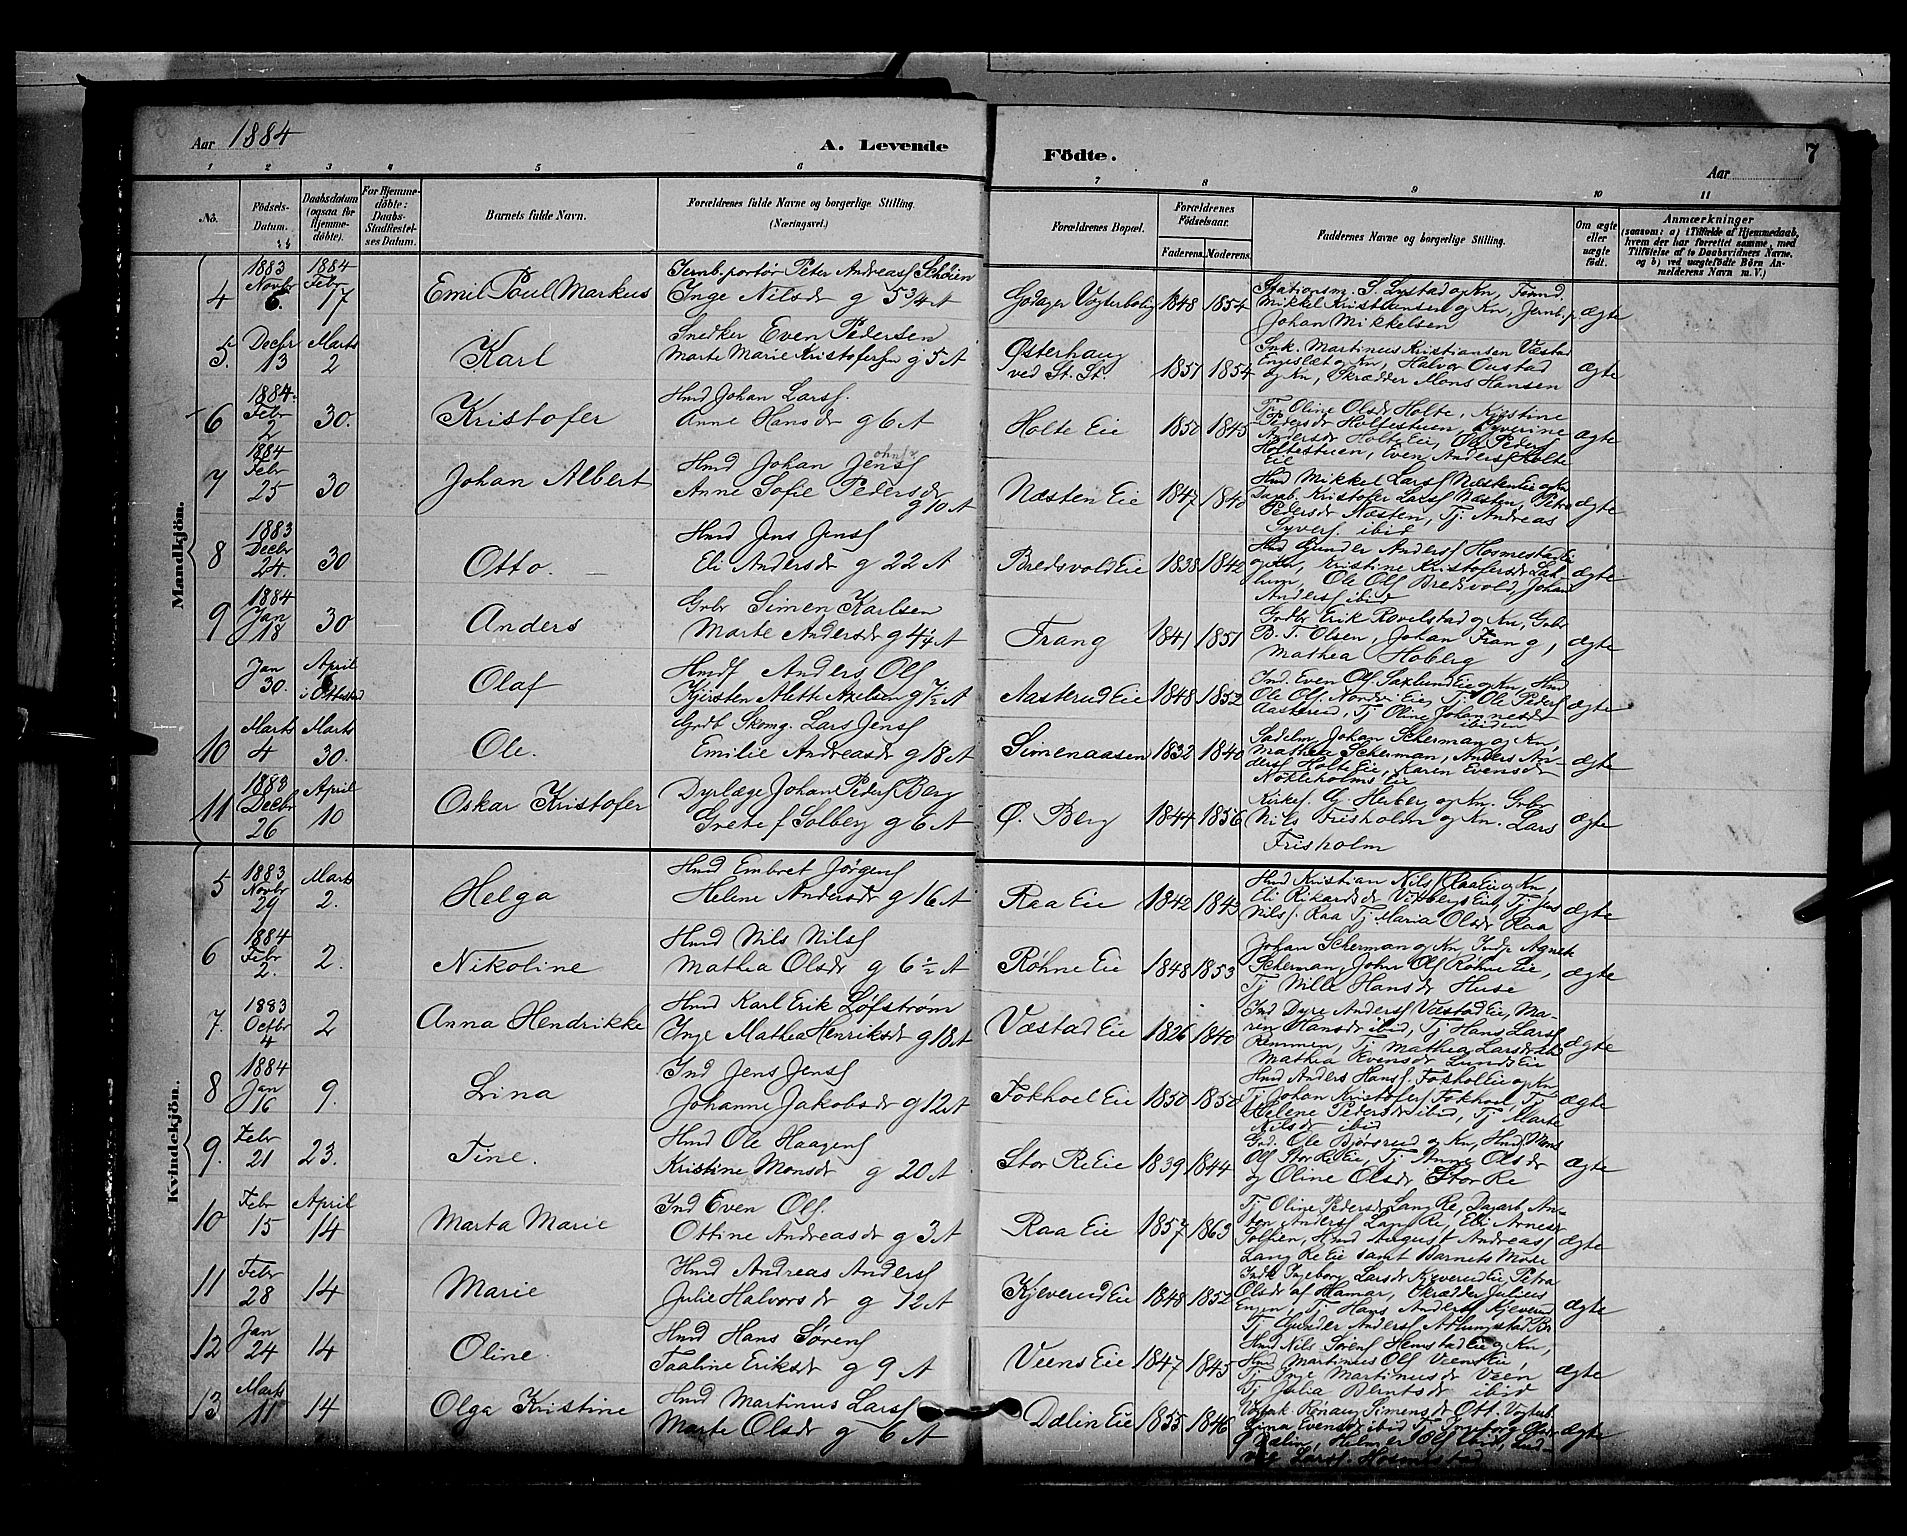 Aar 1884
A. Levende
Födte.
7
Aar
1 2 3 4 5 6 7 8 9 10 11
No.
Födsels-Datum.
Daabsdatum (ogsaa for Hjemme-döbte).
For Hjemme-döbte: Daabs-Stadfæstel-ses Datum.
Barnets fulde Navn.
Forældrenes fulde Navne og borgerlige Stilling. (Næringsvei.)
Forældrenes Bopæl.
Forældrenes Födselsaar.
Faderens. Moderens.
Faddernes Navne og borgerlige Stilling.
Om ægte eller uægte födt.
Anmærkninger
(saasom: a) i Tilfælde af Hjemmedaab, hvem der har forrettet samme, med Tilföielse af to Daabsvidners Navne, og b) ved uægtefödte Börn An-melderens Navn m. V.)
Mandkjön.
4 1883 Novbr 6. 1884 Febr 17 Emil Paul Markus
Jernb.portör Peter Andreasf Schöien
Inge Nilsdr g 5 3/4 A
Godager Vogterbolig 1848 1854
Stationsm. S. Lystad og Kn,
Mikkel Kristiansen og Kn, Jernb.p.
Johan Mikkelsen
ægte
5. Decbr 13 Marts 2 Karl
Snedker Even Pedersen
Marte Marie Kristofersdr g 5 A
Østerhaug
ved St. St. 1851 1854
Snk. Martinus Kristiansen Væstad
og Kn, Halvor Oustad
og Kn, Skrædder Mons Hansen
ægte
6 1884 Febr 2 30. Kristofer
Hmd Johan Larsf.
Anne Hansdr g 6 A
Holte Eie 1850 1845
Oline Olsdr Holte, Kristine
Pedersdr Holtestuen, Syverine
Andersdr Holte Eie, Ole Pedersf
Holtestuen, Even Andersf Holte
Eie
ægte
7 1884 Febr 25 30 Johan Albert
Hmd Johan Jensf
Anne Sofie Pedersdr
g 10 A
Næsten Eie 1847 1840
Hmd Mikkel Larsf Næsten Eie og Kn
Kristofer Larsf Næsten, Petra
Pedersdr Næsten, Tj. Andreas
Syversf. ibid
ægte
8 1883 Decbr 24. 30 Otto.
Hmd Jens Jensf
Eli Andersdr g 22 A
Bredsvold Eie 1838 1842
Hmd Gunder Andersf Hosmestad Ei
og Kn, Kristine Kristofersdr
Ole Olsf Bredsvold, Johan
Andersf ibid
ægte
9 1884 Jan 18 30 Anders
Grbr Simen Karlsen
Marte Andersdr g 4 1/4 A
Frang 1841 1851
Grdbr Erik Rovelstad og Kn, Grbr
B. T. Olsen, Johan Frang,
Mathea Hoberg
ægte
Jan 30. April 6 i Ottestad Olaf
Hmdf Anders Olsf
Kjersten Mette Axelsen g 7 1/2 A
Aasterud Eie 1848 1852
Ind. Even Olsf. Saxlund Eie og Kn, Hmd
Ole Olsf. Nordvi Eie, Tj. Ole Pedersf
Aasterud, Tj Oline Johannesdr
ibidem
ægte
10 Marts 4 Marts 30. Ole.
Grdb Skomg. Lars Jensf
Emilie Andreasdr g 18 A
Simenaasen 1832 1840
Sadelm. Johan Scherman og Kn,
Mathea Scherman, Anders An-
dersf Holte Eie, Karen Evensdr
Nökleholms Eie
ægte
11 1883 Decbr 26 April 10 Oskar Kristofer
Dyrlæge Johan Pedersf Berg
Grete f Solberg g 6 A
Ø. Berg 1844 1856
Kirkes. G. Herberg og Kn. Grbr
Nils Frisholm og Kn. Lars
Frisholm
ægte
Kvindekjön.
5 1883 Novbr 29 Marts 2. Helga
Hmd Embret Jörgensf
Helene Andersdr g 16 A
Raa Eie 1842 1843
Hmd Kristian Nilsf Raa Eie og Kn,
Eli Rikardsdr Vikbergs Eie, Tj Jens
Nilsf. Raa Tj Maria Olsdr Raa
ægte
6 1884 Febr 2. 2. Nikoline
Hmd Nils Nilsf
Mathea Olsdr g 6 1/2 A
Røhne Eie 1848 1853
Johan Scherman og Kn, Indp Agnete
Scherman, John Olsf Røhne Eie,
Tj Nille Hansdr Huse
ægte
7. 1883 Octbr 4 2 Anna Hendrikke
Hmd Karl Erik Løfstrøm
Inge Mathea Henriksdr g 18 A
Væstad Eie 1826 1840
Ind Dyre Andersf Væstad Eie, Ma-
ren Hansdr ibid, Tj Hans Larsf
Remmen, Tj Mathea Larsdr ibid
Mathea Evensdr Lunds Eie
ægte
8 1884 Jan 16 9. Lina
Ind Jens Jensf
Johanne Jakobsdr g 12 A
Fokhoel Eie 1850 1850
Hmd Anders Hansf. Fokhol Eie og Kn
Tj Johan Kristofersf Fokhoel Tj
Helene Pedersdr ibid, Tj Marte
Nilsdr ibid
ægte
9. Febr 21 23. Tine.
Hmd Ole Haagensf
Kristine Monsdr g 20 A
Stor Re Eie 1839 1844
Grd. Ole Bjørsrud og Kn, Hmd Mons
Olsf Stor Re Eie, Tj Anne Olsdr
og Oline Olsdr Stor Re
ægte
10 Febr 15 April 14 Marta Marie
Ind Even Olsf.
Ottine Andreasdr g 3 A
Raa Eie 1857 1863
Tj Oline Pedersdr Lang Re, Dagarb. An-
ton Andersf Lang Re, Elli Arnesdr
Solhien, Hmd August Andreasf
Lang Re Eie samt Barnets Mode
ægte
11 Febr 28 14 Marie
Hmd Andreas Andersf
Julie Halvorsdr g 12 A
Kjeverud Eie 1848 1852
Indk Ingeborg Larsdr Kjeverud Eie, Petra
Olsdr af Hamar, Skrædder Julius
Engen, Tj. Hans Andersf Kjeverud
Tj Gunder Andersf Atlungstad Br
ægte
12 Jan 24 14 Oline.
Hmd Hans Sørensf
Taaline Eriksdr g 9 A
Veens Eie 1847 1845
Hmd Nils Sørensf Hemstad Eie og Kn,
Hmd Martinus Olsf Veens Eie,
Tj Inge Martinusdr Veen
Tj Julia Berntsdr ibid
ægte
13 Marts 11 14 Olga Kristine
Hmd Martinus Larsf
Marte Olsdr g 6 A
Dælin Eie 1855 1846
Rønaug Simensdr Ott.
Lina Evensdr ibid Tj Ingeborg Olsdr
Dælin, Helmer Olsf ibid, Lud-
vig Larsf. Hosmestad
ægte